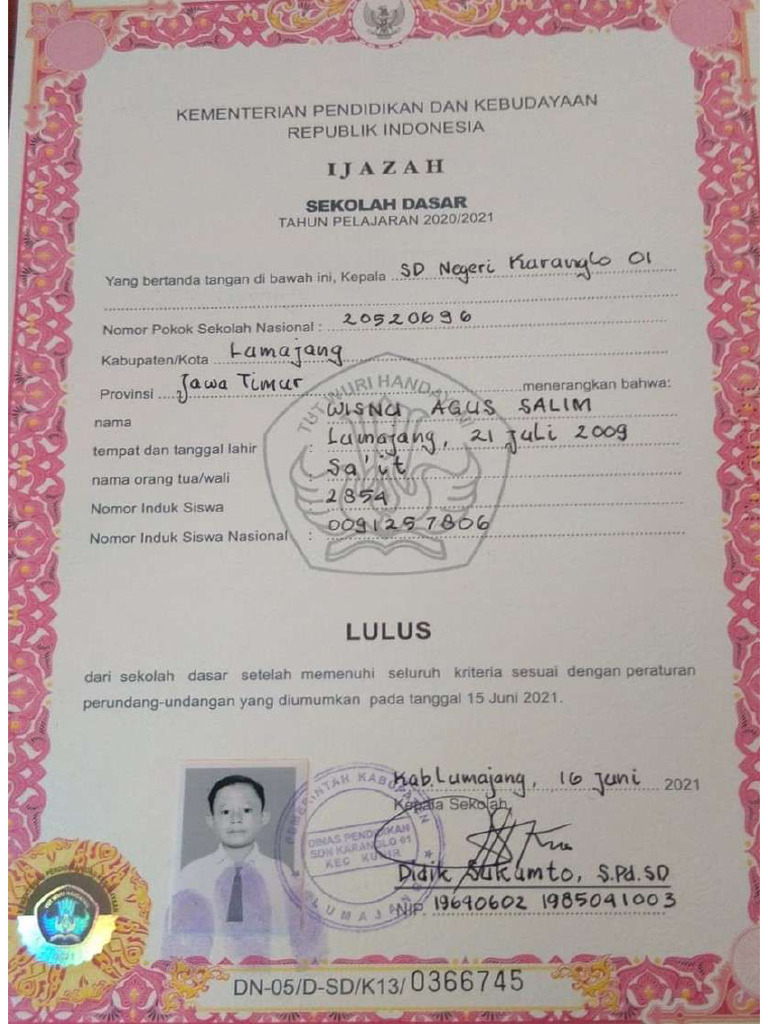 KEMENTERIAN PENDIDIKAN DAN KEBUDAYAAN
REPUBLIK INDONESIA
IJAZAH
SEKOLAH DASAR
TAHUN PELAJARAN 2020/2021
Yang bertanda tangan di bawah ini, Kepala SD Negeri Karanglo 01
Nomor Pokok Sekolah Nasional : 20520696
Kabupaten/Kota Lumajang
Provinsi Jawa Timur menerangkan bahwa:
nama : WISNU AGUS SALIM
tempat dan tanggal lahir : Lumajang, 21 juli 2009
nama orang tua/wali : Sa'it
Nomor Induk Siswa : 2854
Nomor Induk Siswa Nasional : 0091257806
TUT WURI HANDAYANI
LULUS
dari sekolah dasar setelah memenuhi seluruh kriteria sesuai dengan peraturan
perundang-undangan yang diumumkan pada tanggal 15 Juni 2021.
Kab.Lumajang, 16 juni 2021
Kepala Sekolah,
PEMERINTAH KABUPATEN
DINAS PENDIDIKAN
SDN KARANGLO 01
KEC KUNIR
LUMAJANG
Didik Sukamto, S.Pd.SD
NIP 19640602 1985041003
TUT WURI HANDAYANI
2021
DN-05/D-SD/K13/0366745